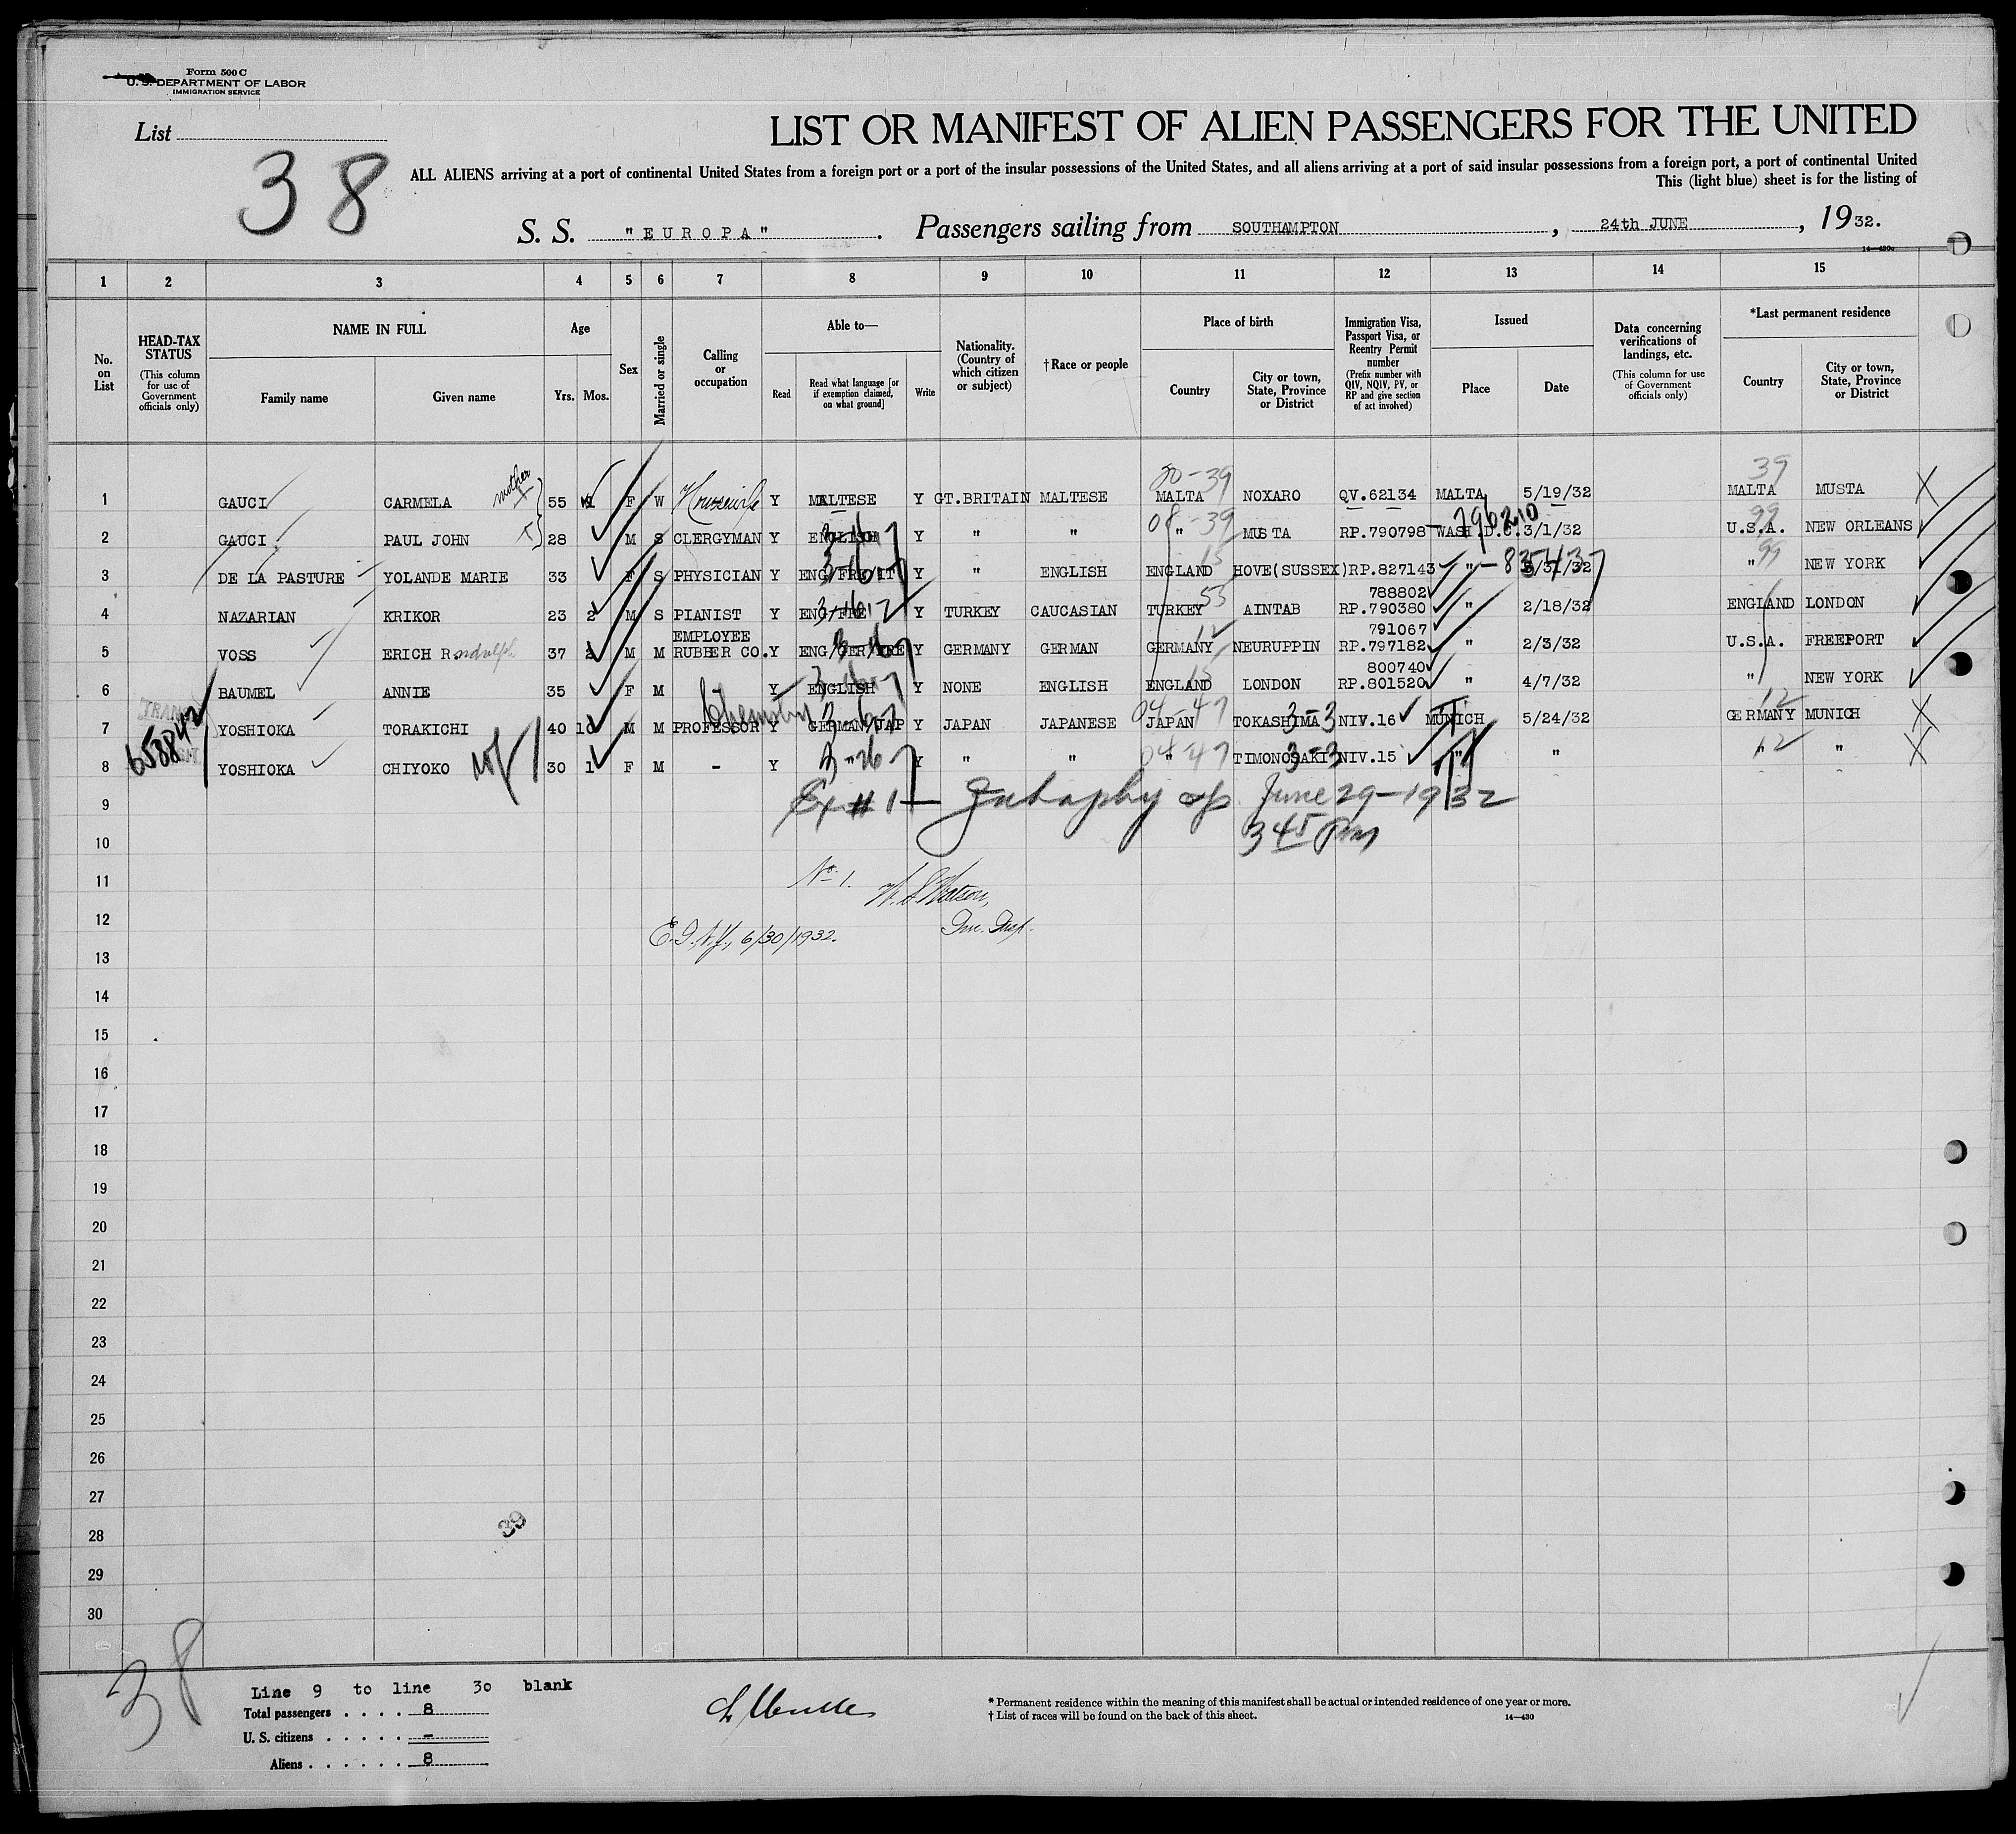 Form 500 C
U. S. DEPARTMENT OF LABOR
IMMIGRATION SERVICE
List
38
LIST OR MANIFEST OF ALIEN PASSENGERS FOR THE UNITED
ALL ALIENS arriving at a port of continental United States from a foreign port or a port of the insular possessions of the United States, and all aliens arriving at a port of said insular possessions from a foreign port, a port of continental United
This (light blue) sheet is for the listing of
S. S. "EUROPA". Passengers sailing from SOUTHAMPTON, 24th JUNE, 1932.
14—430c
1 2 3 4 5 6 7 8 9 10 11 12 13 14 15
No. on List
HEAD-TAX STATUS
(This column for use of Government officials only)
NAME IN FULL
Family name
Given name
Age
Yrs. Mos.
Sex
Married or single
Calling or occupation
Able to—
Read
Read what language [or if exemption claimed, on what ground]
Write
Nationality. (Country of which citizen or subject)
†Race or people
Place of birth
Country
City or town, State, Province or District
Immigration Visa, Passport Visa, or Reentry Permit number
(Prefix number with QIV, NQIV, PV, or RP and give section of act involved)
Issued
Place
Date
Data concerning verifications of landings, etc.
(This column for use of Government officials only)
*Last permanent residence
Country
City or town, State, Province or District
20-39 39
1 GAUCI CARMELA mother 55 F W Housewife Y MALTESE Y GT.BRITAIN MALTESE MALTA NOXARO QV.62134 MALTA 5/19/32 MALTA MUSTA X
08-39 796210 99
2 GAUCI PAUL JOHN 28 M S CLERGYMAN Y ENGLISH Y " " " MUSTA RP.790798 WASH.D.C. 3/1/32 U.S.A. NEW ORLEANS
15 99
3 DE LA PASTURE YOLANDE MARIE 33 F S PHYSICIAN Y ENG/FRE/IT Y " ENGLISH ENGLAND HOVE(SUSSEX) RP.827143 " 835437 5/31/32 " NEW YORK
53 788802
4 NAZARIAN KRIKOR 23 2 M S PIANIST Y ENG/FRE Y TURKEY CAUCASIAN TURKEY AINTAB RP.790380 " 2/18/32 ENGLAND LONDON
EMPLOYEE 12 791067
5 VOSS ERICH Rondolph 37 2 M M RUBBER CO. Y ENG/GER/FRE Y GERMANY GERMAN GERMANY NEURUPPIN RP.797182 " 2/3/32 U.S.A. FREEPORT
15 800740
6 BAUMEL ANNIE 35 F M - Y ENGLISH Y NONE ENGLISH ENGLAND LONDON RP.801520 " 4/7/32 " NEW YORK
Chemistry 04-47 3-3 12
7 YOSHIOKA TORAKICHI 40 10 M M PROFESSOR Y GERMAN/JAP Y JAPAN JAPANESE JAPAN TOKASHIMA NIV.16 MUNICH 5/24/32 GERMANY MUNICH X
65884 04-47 3-3 12
8 YOSHIOKA CHIYOKO wf 30 1 F M - Y " Y " " " TIMONOSAKI NIV.15 " " " " X
9 June 29-1932
10 345 Pm
11 No 1. W. S. Watson,
12 E.I.N.Y., 6/30/1932. Imm. Insp.
13
14
15
16
17
18
19
20
21
22
23
24
25
26
27
28 39
29
30
38
Line 9 to line 30 blank
Total passengers .... 8
U. S. citizens ..... -
Aliens ...... 8
* Permanent residence within the meaning of this manifest shall be actual or intended residence of one year or more.
† List of races will be found on the back of this sheet.
14—430